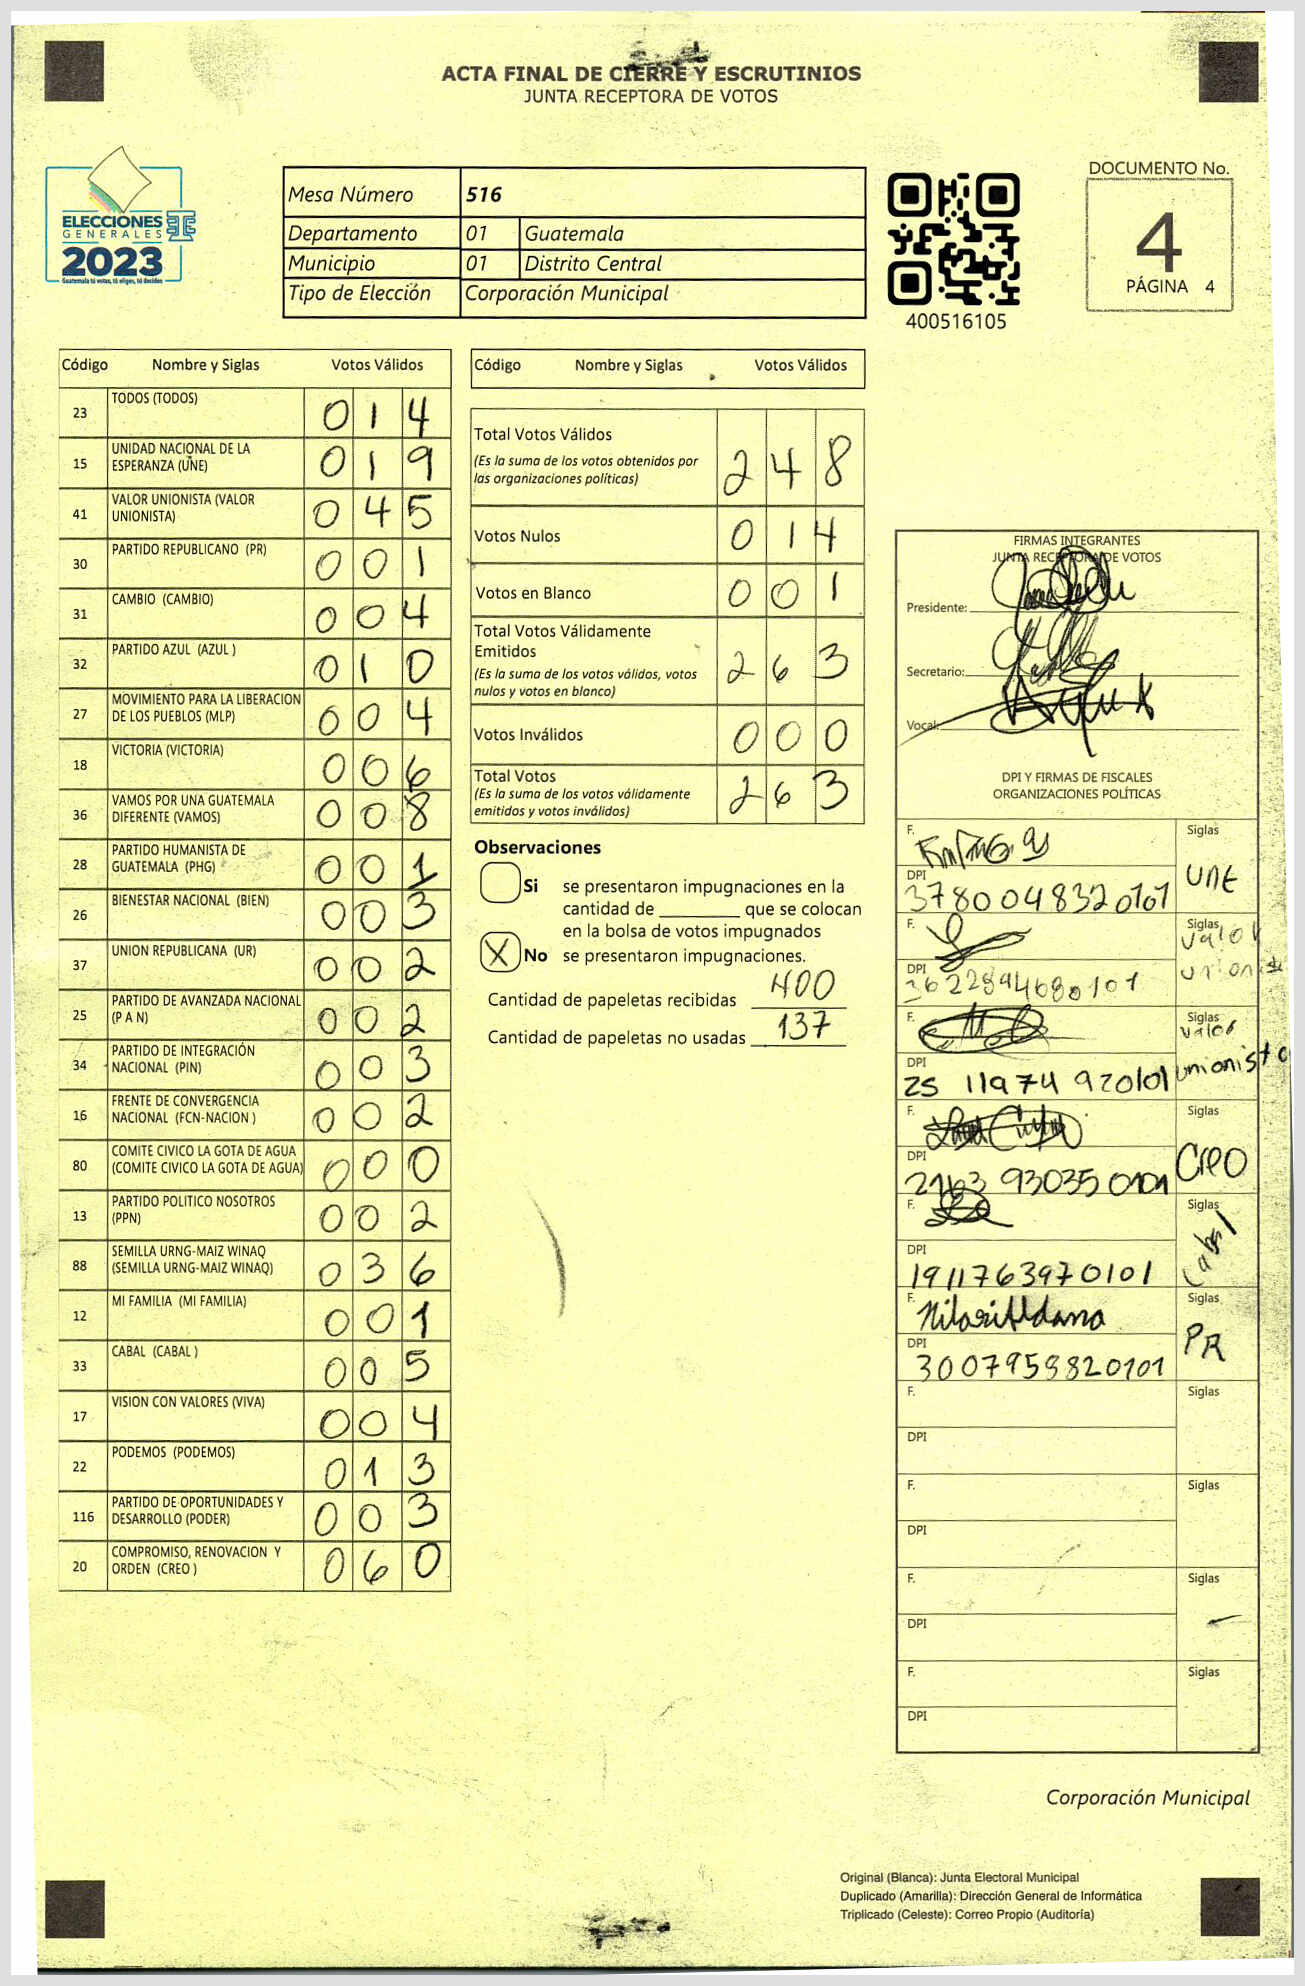 ACTA FINAL DE CIERRE Y ESCRUTINIOS
JUNTA RECEPTORA DE VOTOS
ELECCIONES
GENERALES
2023
Guatemala tú votas, tú eliges, tú decides
Mesa Número 516
Departamento 01 Guatemala
Municipio 01 Distrito Central
Tipo de Elección Corporación Municipal
400516105
DOCUMENTO No.
4
PÁGINA 4
Código Nombre y Siglas Votos Válidos
23 TODOS (TODOS) 0 1 4
15 UNIDAD NACIONAL DE LA ESPERANZA (UNE) 0 1 9
41 VALOR UNIONISTA (VALOR UNIONISTA) 0 4 5
30 PARTIDO REPUBLICANO (PR) 0 0 1
31 CAMBIO (CAMBIO) 0 0 4
32 PARTIDO AZUL (AZUL ) 0 1 0
27 MOVIMIENTO PARA LA LIBERACION DE LOS PUEBLOS (MLP) 0 0 4
18 VICTORIA (VICTORIA) 0 0 6
36 VAMOS POR UNA GUATEMALA DIFERENTE (VAMOS) 0 0 8
28 PARTIDO HUMANISTA DE GUATEMALA (PHG) 0 0 1
26 BIENESTAR NACIONAL (BIEN) 0 0 3
37 UNION REPUBLICANA (UR) 0 0 2
25 PARTIDO DE AVANZADA NACIONAL (P A N) 0 0 2
34 PARTIDO DE INTEGRACIÓN NACIONAL (PIN) 0 0 3
16 FRENTE DE CONVERGENCIA NACIONAL (FCN-NACION ) 0 0 2
80 COMITE CIVICO LA GOTA DE AGUA (COMITE CIVICO LA GOTA DE AGUA) 0 0 0
13 PARTIDO POLITICO NOSOTROS (PPN) 0 0 2
88 SEMILLA URNG-MAIZ WINAQ (SEMILLA URNG-MAIZ WINAQ) 0 3 6
12 MI FAMILIA (MI FAMILIA) 0 0 1
33 CABAL (CABAL ) 0 0 5
17 VISION CON VALORES (VIVA) 0 0 4
22 PODEMOS (PODEMOS) 0 1 3
116 PARTIDO DE OPORTUNIDADES Y DESARROLLO (PODER) 0 0 3
20 COMPROMISO, RENOVACION Y ORDEN (CREO ) 0 6 0
Código Nombre y Siglas Votos Válidos
Total Votos Válidos 2 4 8
(Es la suma de los votos obtenidos por
las organizaciones políticas)
Votos Nulos 0 1 4
Votos en Blanco 0 0 1
Total Votos Válidamente
Emitidos 2 6 3
(Es la suma de los votos válidos, votos
nulos y votos en blanco)
Votos Inválidos 0 0 0
Total Votos 2 6 3
(Es la suma de los votos válidamente
emitidos y votos inválidos)
Observaciones
Si se presentaron impugnaciones en la
cantidad de ________ que se colocan
en la bolsa de votos impugnados
X No se presentaron impugnaciones.
Cantidad de papeletas recibidas 400
Cantidad de papeletas no usadas 137
FIRMAS INTEGRANTES
JUNTA RECEPTORA DE VOTOS
Presidente:
Secretario:
Vocal:
DPI Y FIRMAS DE FISCALES
ORGANIZACIONES POLÍTICAS
F. Siglas
DPI 3780048320101 UNE
F. Siglas Valor
DPI 3622894680101 unionista
F. Siglas Valor
DPI 2511974920101 unionista
F. Siglas
DPI 2163930350101 Creo
F. Siglas Cabal
DPI 1911763970101
F. Hilari Aldana Siglas
DPI 3007959820101 PR
F. Siglas
DPI
F. Siglas
DPI
F. Siglas
DPI
F. Siglas
DPI
Corporación Municipal
Original (Blanca): Junta Electoral Municipal
Duplicado (Amarilla): Dirección General de Informática
Triplicado (Celeste): Correo Propio (Auditoría)